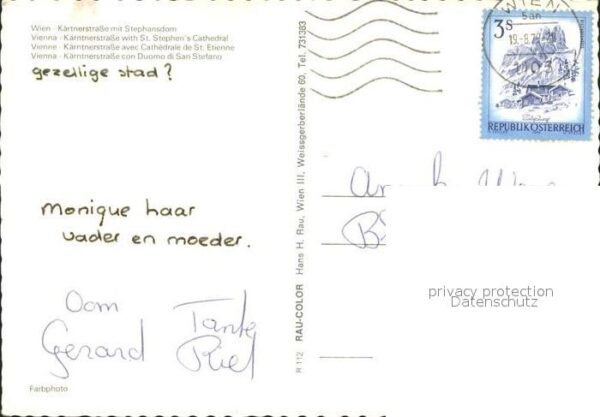 Wien - Kärtnerstraße mit Stephansdom
Vienna - Kärntnerstraße with St. Stephen's Cathedral
Vienne - Kärntnerstraße avec Cathédrale de St. Etienne
Vienna - Kärntnerstraße con Duomo di San Stefano
gezellige stad?
Monique haar
vader en moeder.
Oom Tante
Gerard Riel
Farbphoto
R 112 RAU-COLOR Hans H. Rau, Wien III, Weissgerberlände 60, Tel. 731383
WIEN
3s
REPUBLIK ÖSTERREICH
privacy protection
Datenschutz